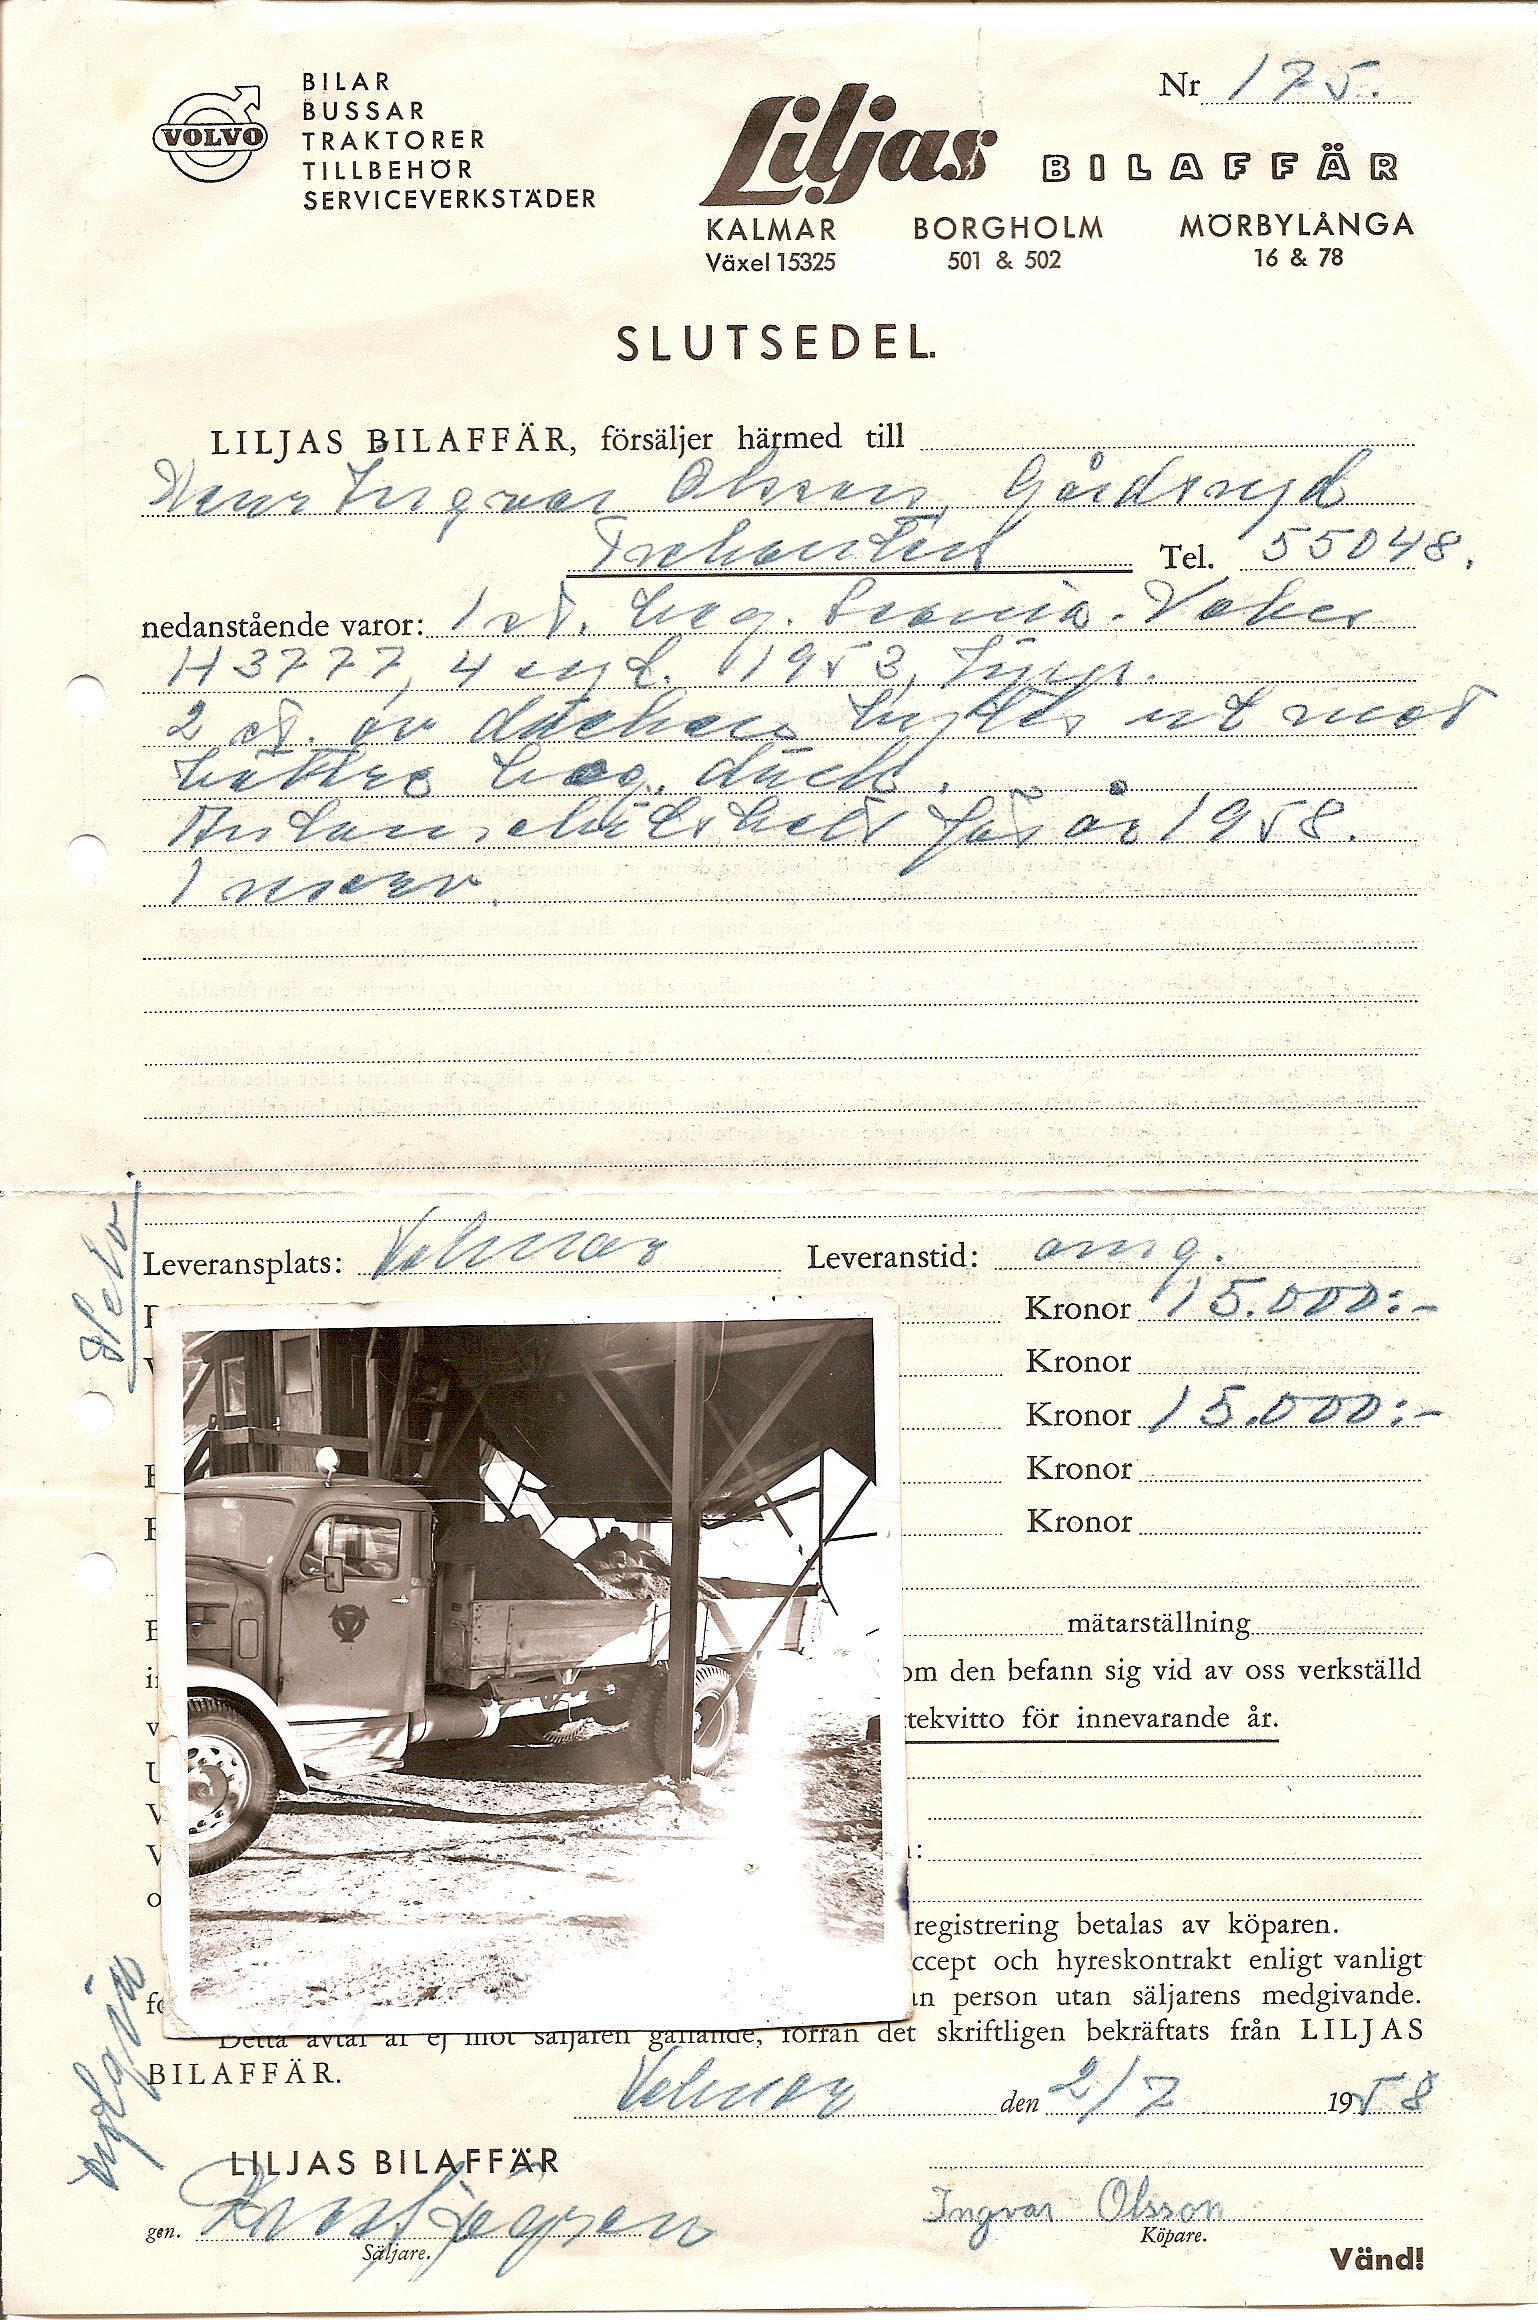 VOLVO
BILAR
BUSSAR
TRAKTORER
TILLBEHÖR
SERVICEVERKSTÄDER
Nr 175.
Liljas BILAFFÄR
KALMAR BORGHOLM MÖRBYLÅNGA
Växel 15325 501 & 502 16 & 78
SLUTSEDEL.
LILJAS BILAFFÄR, försäljer härmed till
Herr Ingvar Olsson, Gårdsryd
Trekanten Tel. 55048.
nedanstående varor: 1 st. beg. Scania-Vabis
H3777, 4 cyl. 1953,
2 st. av däcken bytes ut mot
bättre beg. däck.
för år 1958.
1
Leveransplats: Kalmar Leveranstid: omg.
Kronor 15.000:-
Kronor
Kronor 15.000:-
Kronor
Kronor
mätarställning
om den befann sig vid av oss verkställd
tekvitto för innevarande år.
registrering betalas av köparen.
ccept och hyreskontrakt enligt vanligt
an person utan säljarens medgivande.
Detta avtal är ej mot säljaren gällande, förrän det skriftligen bekräftats från LILJAS
BILAFFÄR.
Kalmar den 2/7 1958
LILJAS BILAFFÄR
gen.
Säljare.
Ingvar Olsson
Köpare.
Vänd!